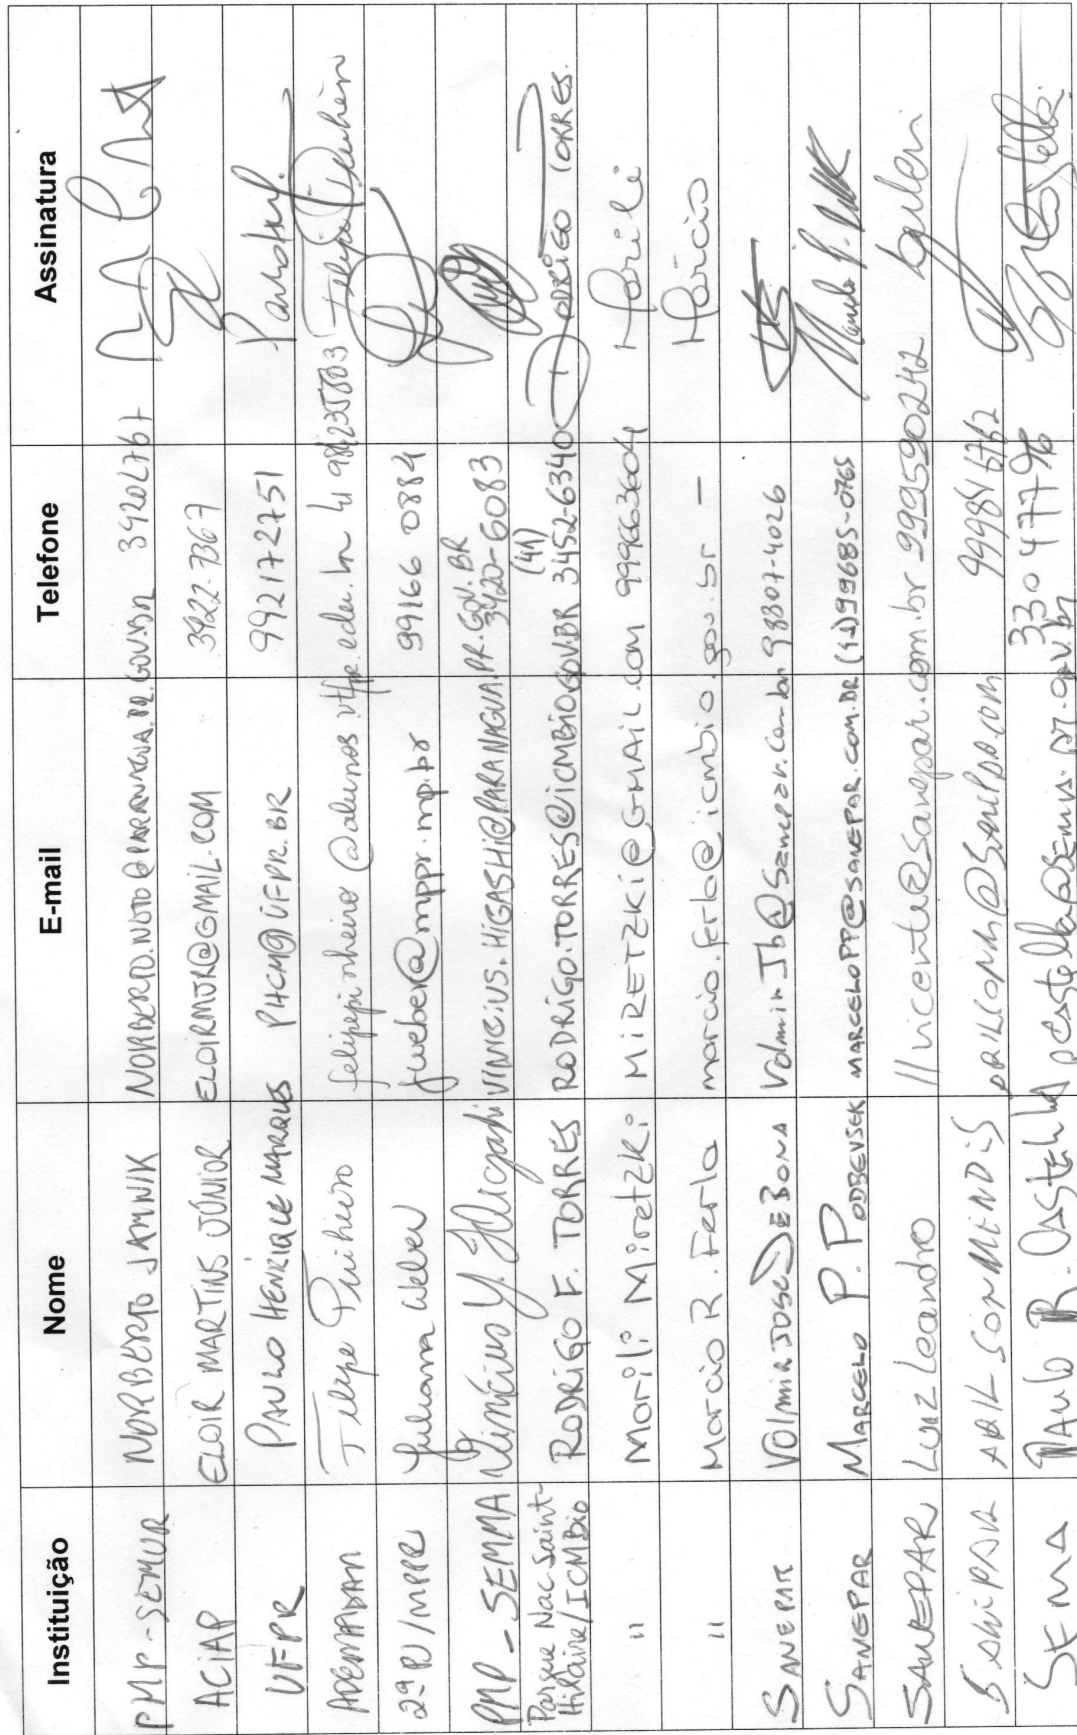 Instituição Nome E-mail Telefone Assinatura
PMP-SEMUR NORBERTO JAMNIK 
ACIAP ELOIR MARTINS JÚNIOR ELOIRMJR@GMAIL.COM 3422-7367
UFPR PAULO HENRIQUE MARQUES PHCM@UFPR.BR 992172751
ADEMADAN Felipe Pinheiro felipepinheiro@alunos.utfpr.edu.br Felipe Pinheiro
2ª PJ/MPPR Juliana Weber juweber@mppr.mp.br 99166 0884
PMP-SEMMA Vinícius Y. Higashi VINICIUS.HIGASHI@PARANAGUA.PR.GOV.BR 3420-6083
Parque Nac Saint-
Hilaire/ICMBio RODRIGO F. TORRES RODRIGO.TORRES@ICMBIO.GOV.BR (41) 3452-6340 RODRIGO TORRES.
" Marili Miretzki MIRETZKI@GMAIL.COM 999663604 Marili
" Marcio R. Ferla marcio.ferla@icmbio.gov.br — Marcio
SANEPAR VOLMIR JOSE DE BONA VolmirJb@Sanepar.com.br 98807-4026
SANEPAR MARCELO P. PODBEVSEK MARCELOPP@SANEPAR.COM.BR 99685-0765
SANEPAR Luiz Leandro llvicente@sanepar.com.br 999590242
ADILSON MENDES
SEMA PAULO R. CASTELLA pcastella@sema.pr.gov.br 3304 7796